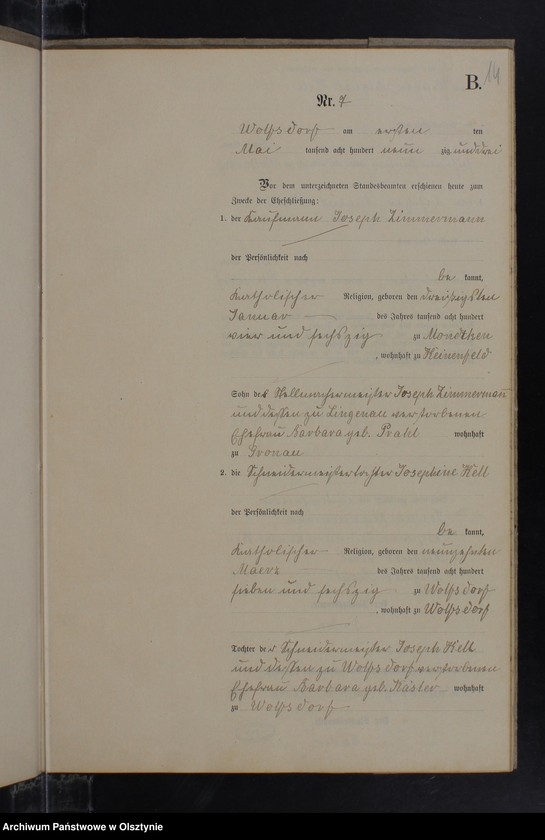 B. 14
Nr. 7
Wolfsdorf am ersten ten
Mai tausend acht hundert neunzig und drei
Vor dem unterzeichneten Standesbeamten erschienen heute zum
Zwecke der Eheschließung:
1. der Kaufmann Joseph Zimmermann
der Persönlichkeit nach
be kannt,
Katholischer Religion, geboren den dreißigsten
Januar des Jahres tausend acht hundert
vier und sechszig zu Mondtken
, wohnhaft zu Heinenfeld
Sohn des Stellmachermeister Joseph Zimmermann
und dessen zu Lingenau verstorbenen
Ehefrau Barbara geb. Prahl wohnhaft
zu Gronau
2. die Schneidermeistertochter Josephine Kell
der Persönlichkeit nach
be kannt,
Katholischer Religion, geboren den neunzehnten
Maerz des Jahres tausend acht hundert
sieben und sechszig zu Wolfsdorf
, wohnhaft zu Wolfsdorf
Tochter der Schneidermeister Joseph Kell
und dessen zu Wolfsdorf verstorbenen
Ehefrau Barbara geb. Käster wohnhaft
zu Wolfsdorf
Archiwum Państwowe w Olsztynie